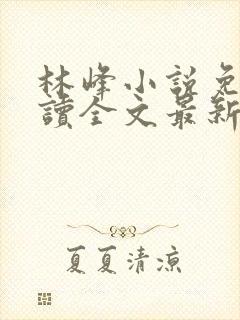 林峰小説免
讀全文最新
夏夏清凉